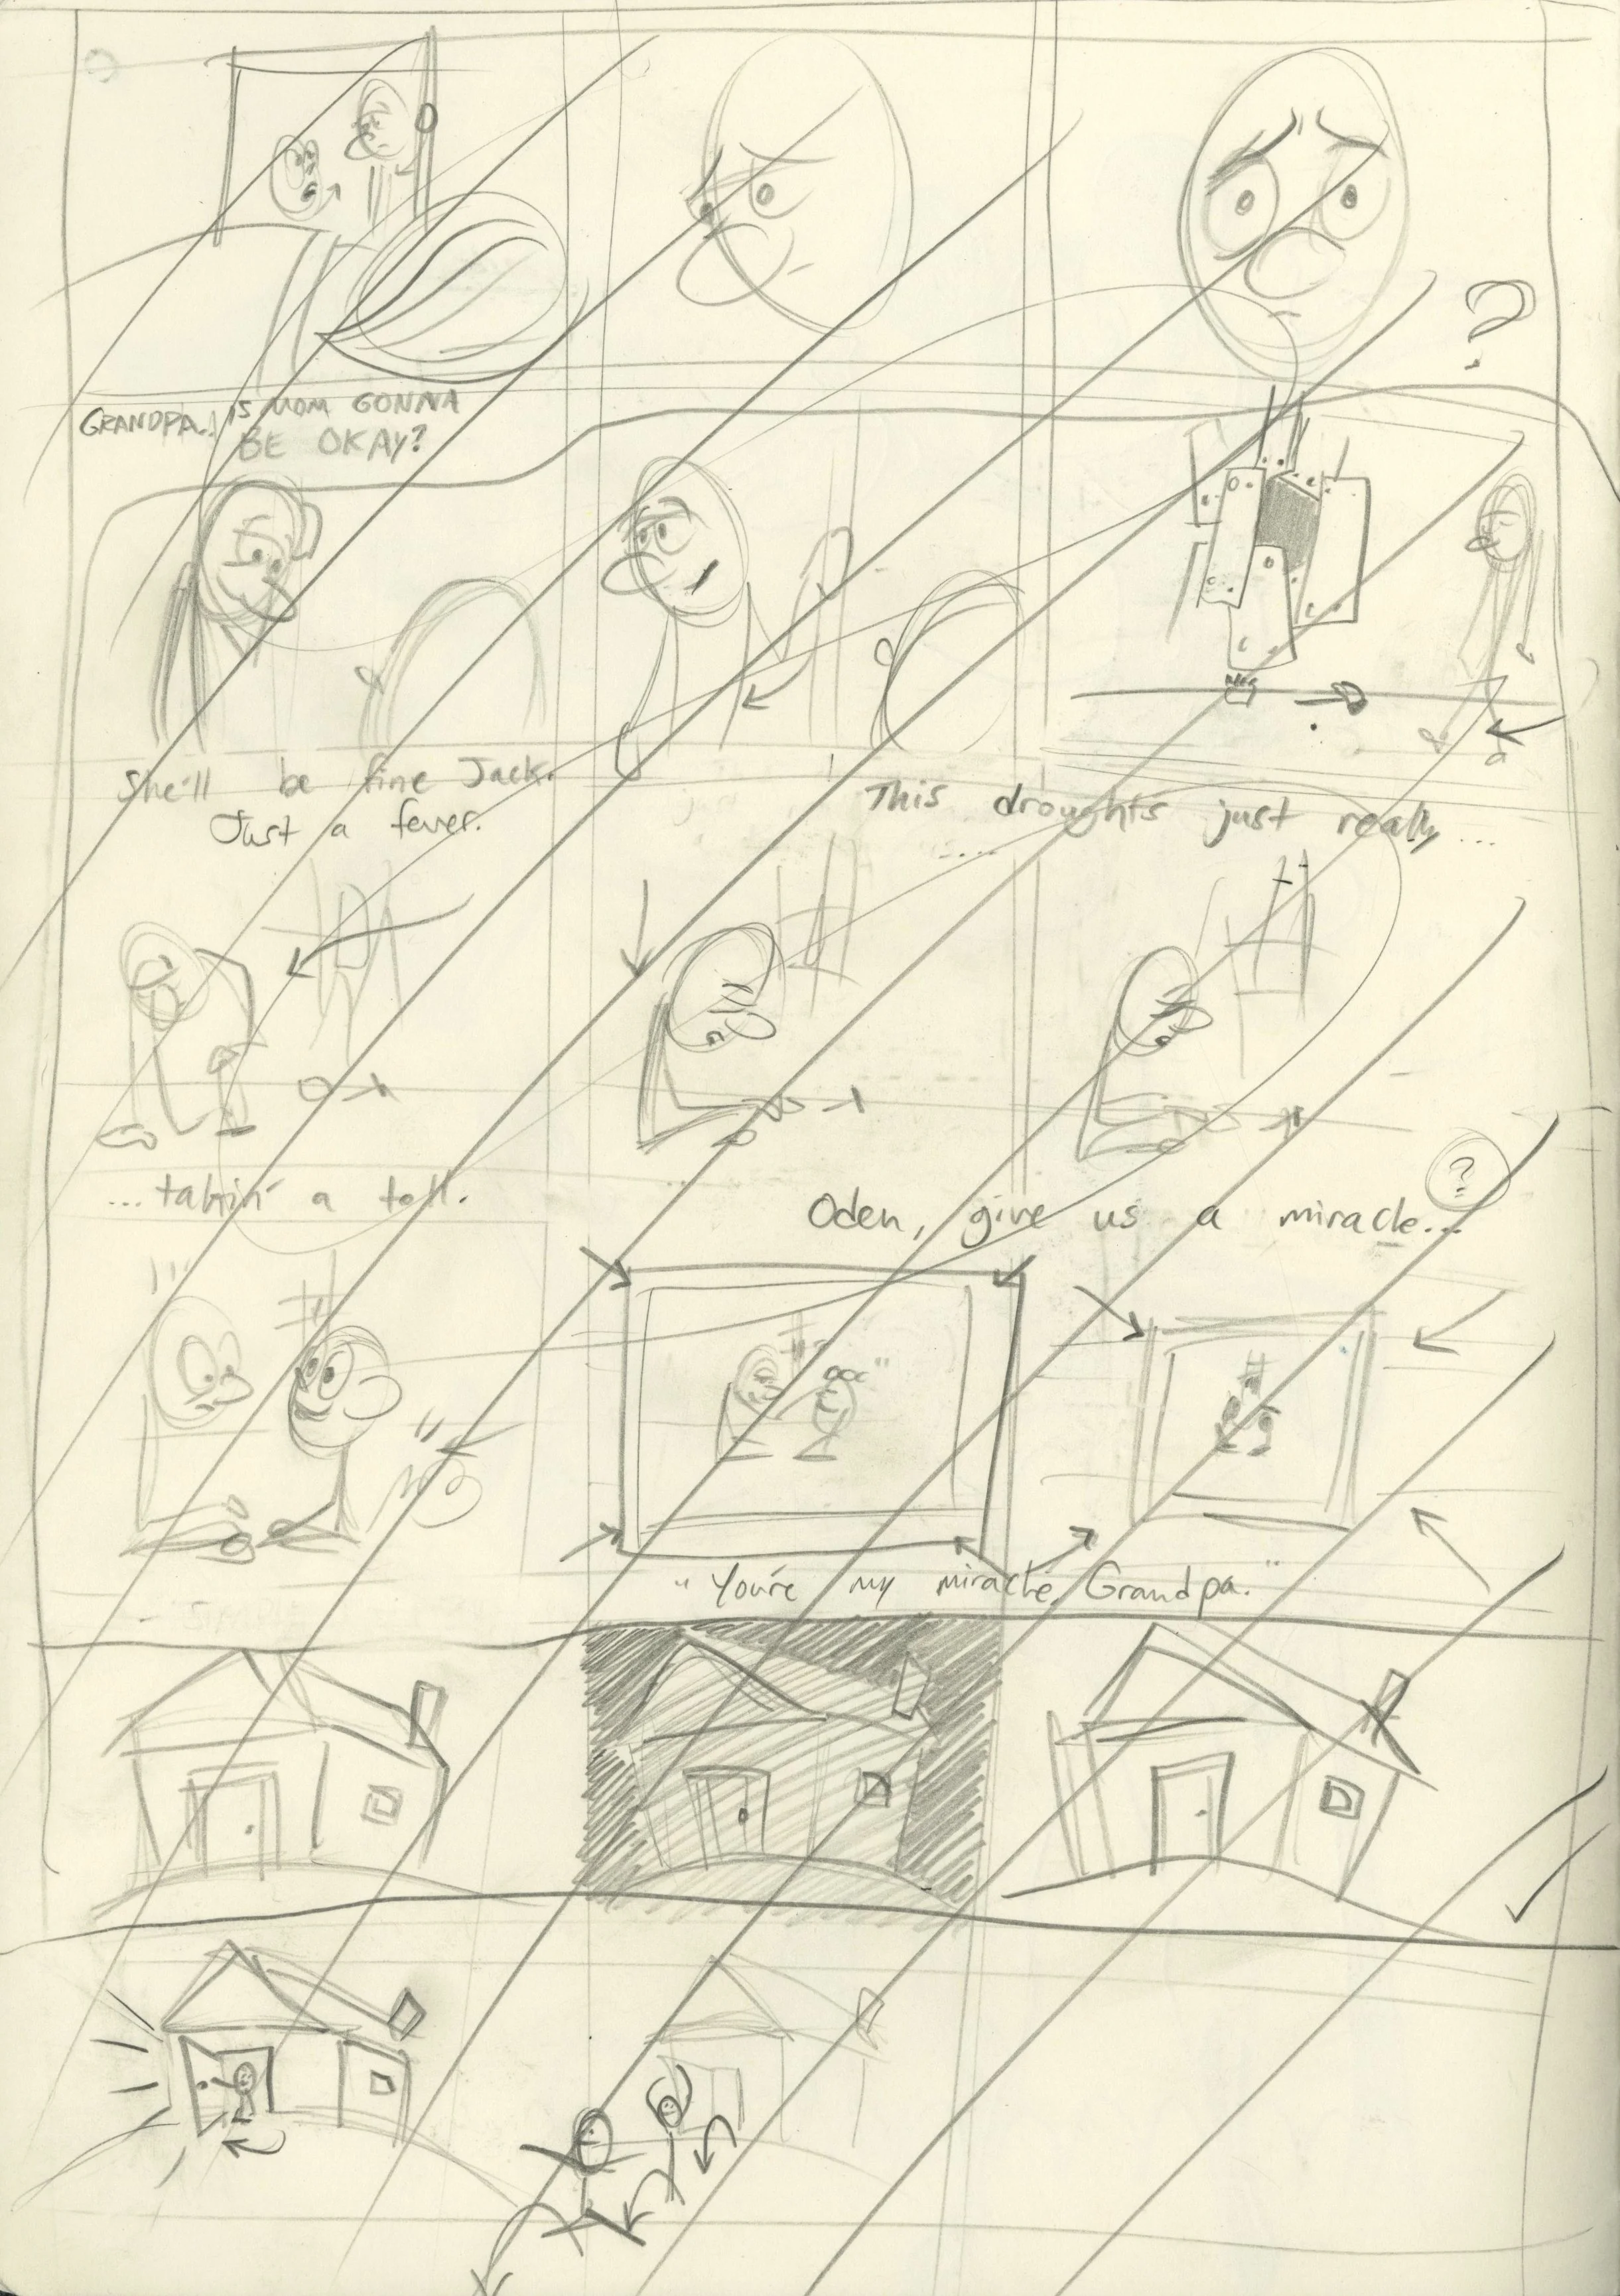 ?
GRANDPA! IS MOM GONNA
BE OKAY?
She'll be fine Jack.
Just a fever.
This droughts just really...
...takin' a toll.
Oden, give us a miracle...
?
"You're my miracle Grandpa."